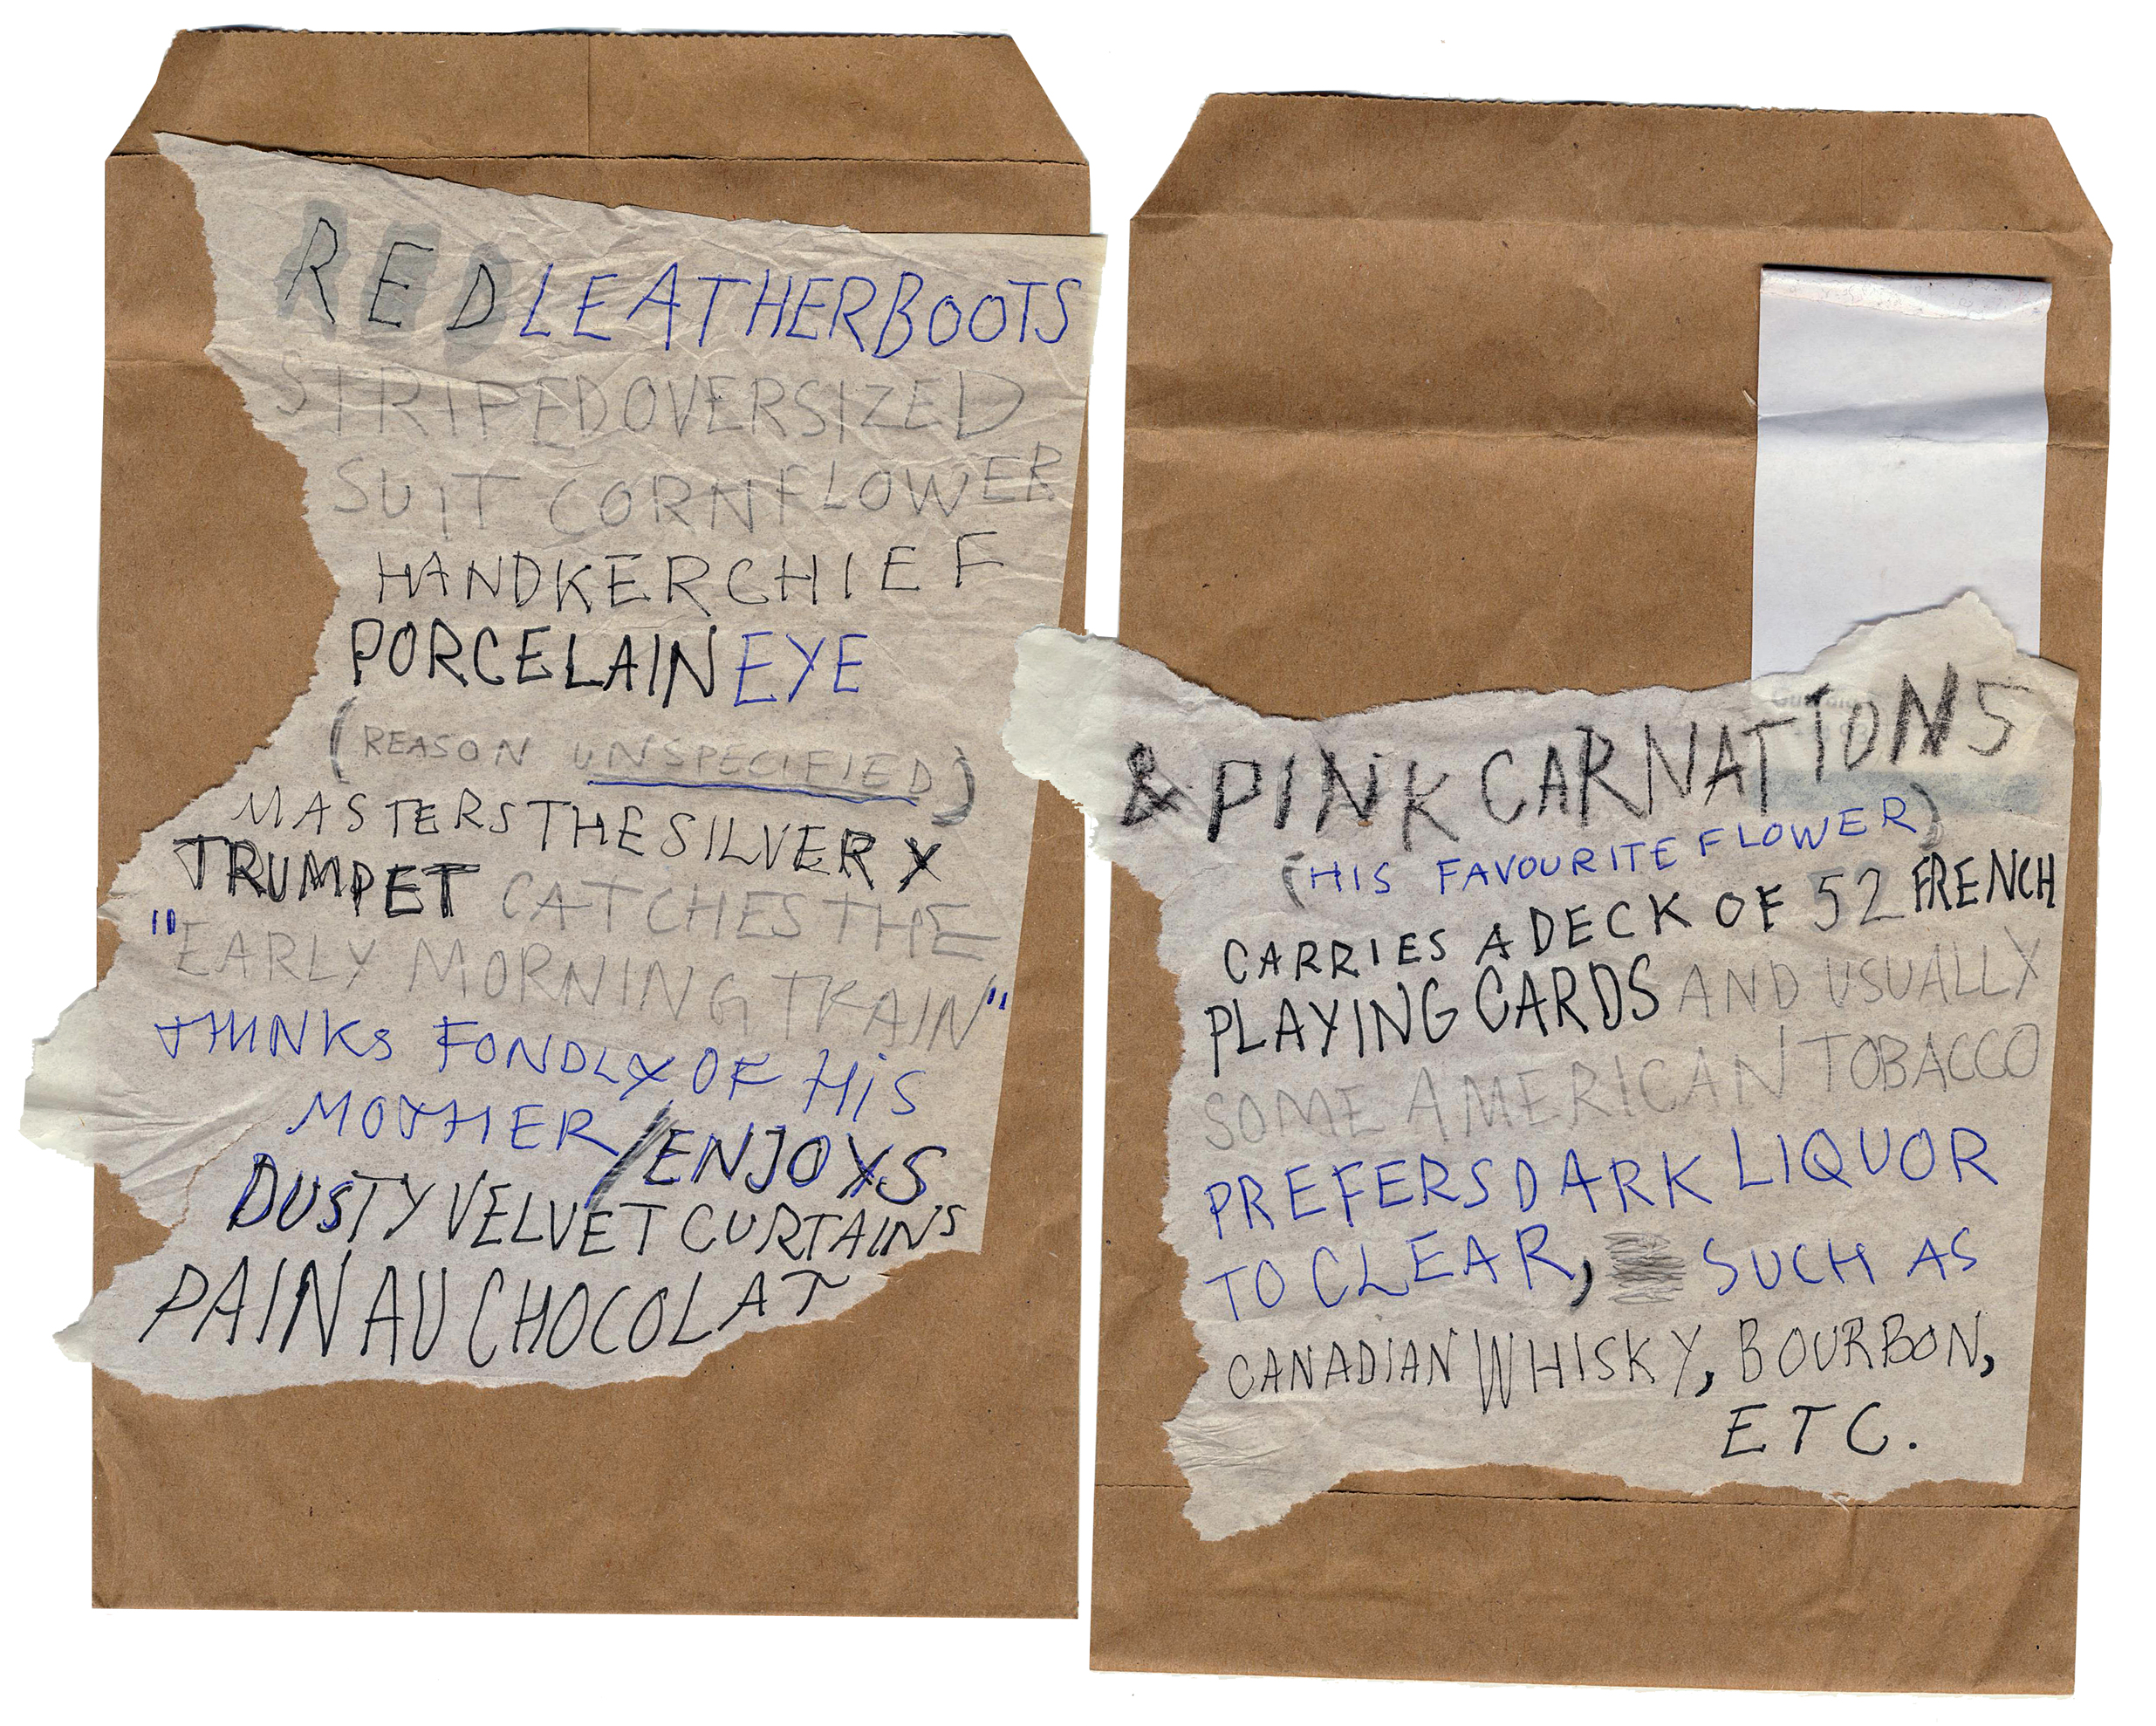 RED LEATHER BOOTS
STRIPED OVERSIZED
SUIT CORNFLOWER
HANDKERCHIEF
PORCELAIN EYE
(REASON UNSPECIFIED)
MASTERS THE SILVER X
TRUMPET CATCHES THE
"EARLY MORNING TRAIN"
THINKS FONDLY OF HiS
MOTHER / ENJOYS
DUSTY VELVET CURTAINS
PAIN AU CHOCOLAT
& PINK CARNATIONS
(HIS FAVOURITE FLOWER)
CARRIES A DECK OF 52 FRENCH
PLAYING CARDS AND USUALLY
SOME AMERICAN TOBACCO
PREFERS DARK LIQUOR
TO CLEAR, SUCH AS
CANADIAN WHISKY, BOURBON,
ETC.